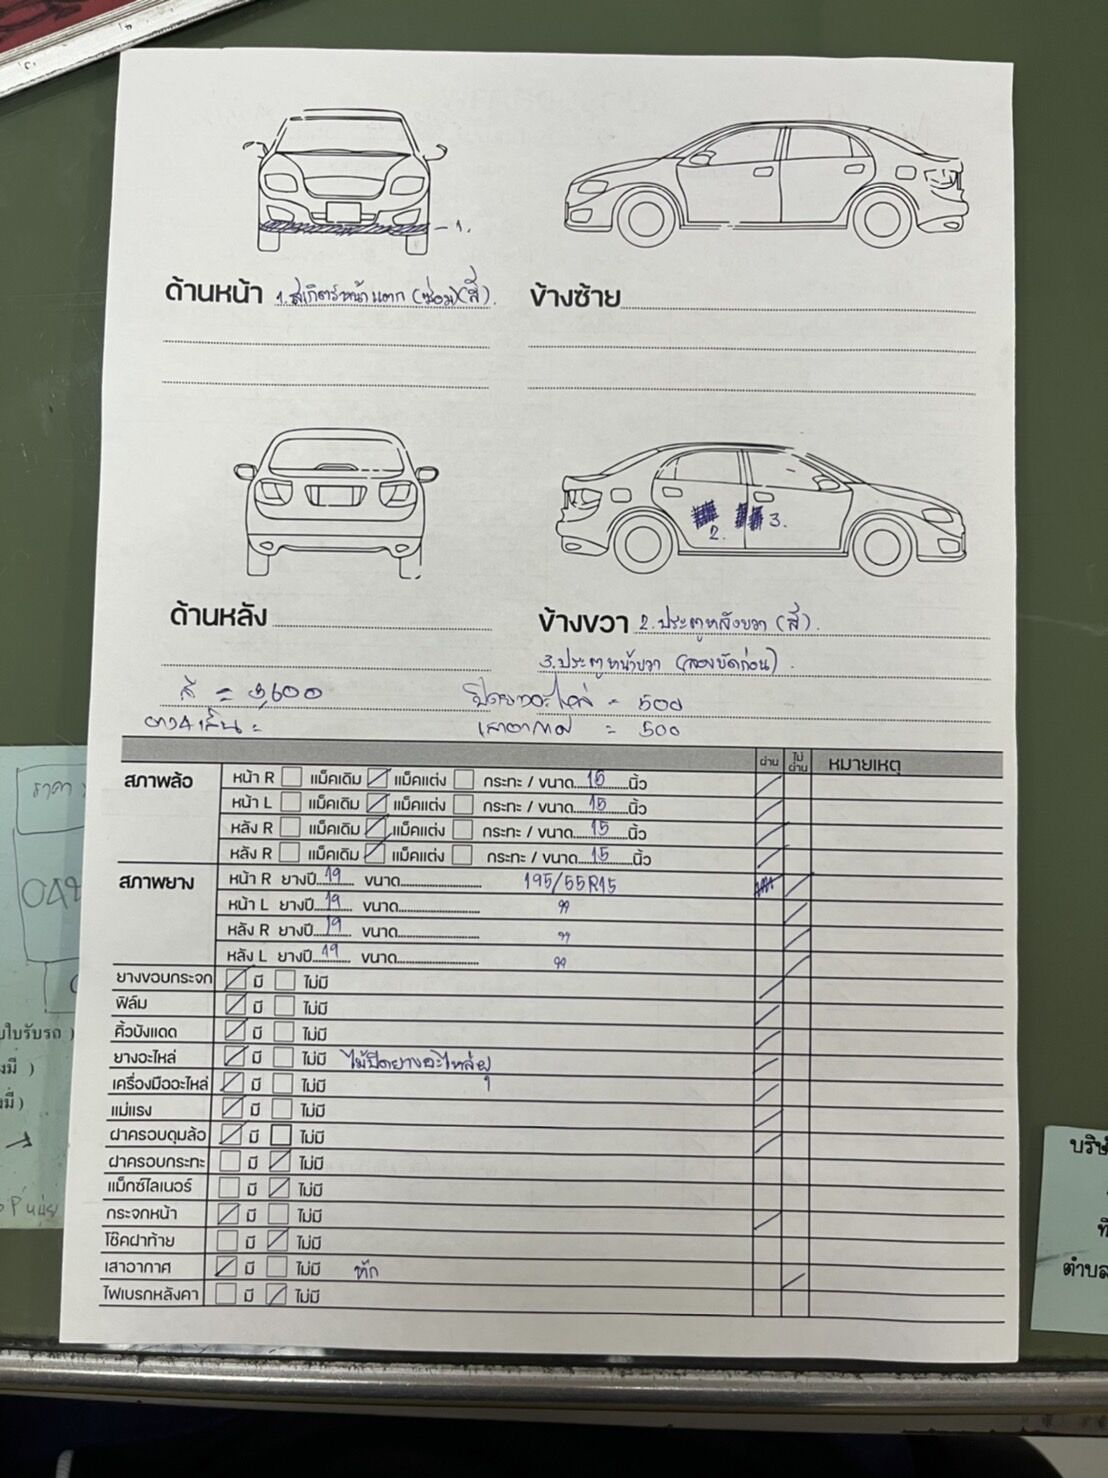 1.
ด้านหน้า 1.สเกิตร์หน้าแตก (ซ่อม)(สี). ข้างซ้าย
2. 3.
ด้านหลัง ข้างขวา 2.ประตูหลังขวา (สี).
3.ประตูหน้าขวา (ลองขัดก่อน).
สี = 3,600 ปิดยางอะไหล่ = 500
ยาง4เส้น = เสาอากาศ = 500
ผ่าน ไม่ผ่าน หมายเหตุ
สภาพล้อ หน้า R แม็คเดิม แม็คแต่ง กระทะ / ขนาด 15 นิ้ว
หน้า L แม็คเดิม แม็คแต่ง กระทะ / ขนาด 15 นิ้ว
หลัง R แม็คเดิม แม็คแต่ง กระทะ / ขนาด 15 นิ้ว
หลัง R แม็คเดิม แม็คแต่ง กระทะ / ขนาด 15 นิ้ว
สภาพยาง หน้า R ยางปี 19 ขนาด 195/55R15
หน้า L ยางปี 19 ขนาด "
หลัง R ยางปี 19 ขนาด "
หลัง L ยางปี 19 ขนาด "
ยางขอบกระจก มี ไม่มี
ฟิล์ม มี ไม่มี
คิ้วบังแดด มี ไม่มี
ยางอะไหล่ มี ไม่มี ไม้ปิดยางอะไหล่ผุ
เครื่องมืออะไหล่ มี ไม่มี
แม่แรง มี ไม่มี
ฝาครอบดุมล้อ มี ไม่มี
ฝาครอบกระทะ มี ไม่มี
แม็กซ์ไลเนอร์ มี ไม่มี
กระจกหน้า มี ไม่มี
โช๊คฝาท้าย มี ไม่มี
เสาอากาศ มี ไม่มี หัก
ไฟเบรกหลังคา มี ไม่มี
ราคา
ใบรับรถ )
งมี )
งมี)
บริษั
ที
ตำบล